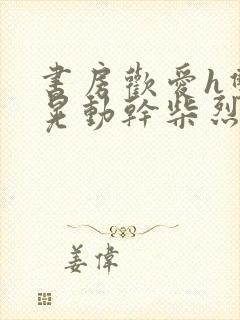 書房歡愛h
晃動幹柴烈
姜偉